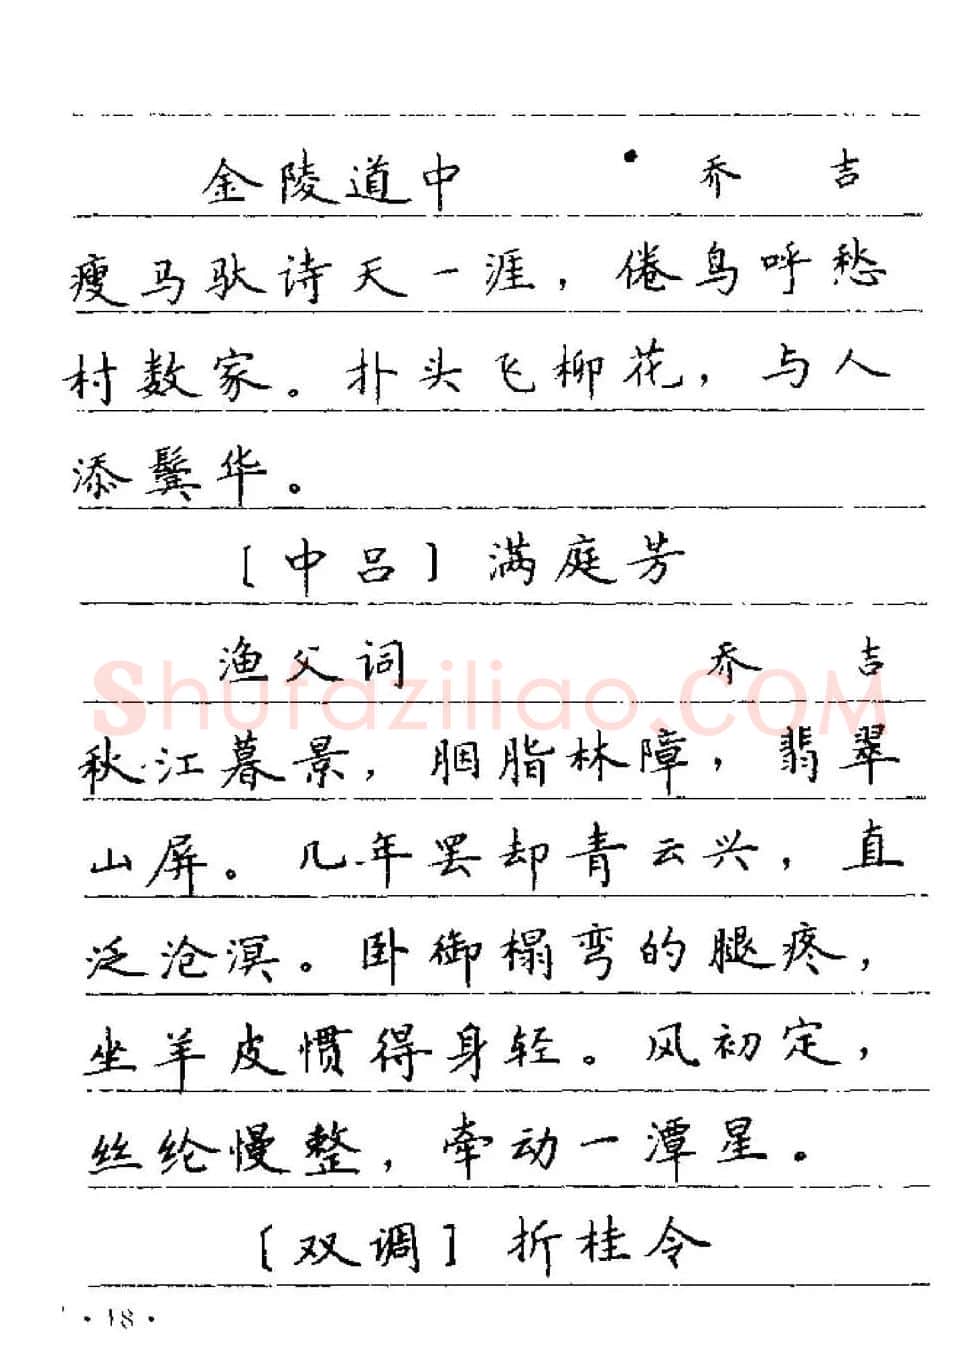 金陵道中 乔吉
瘦马驮诗天一涯，倦鸟呼愁
村数家。扑头飞柳花，与人
添鬓华。
［中吕］满庭芳
渔父词 乔吉
Shufaziliao.COM
秋江暮景，胭脂林障，翡翠
山屏。几年罢却青云兴，直
泛沧溟。卧御榻弯的腿疼，
坐羊皮惯得身轻。风初定，
丝纶慢整，牵动一潭星。
［双调］折桂令
·18·